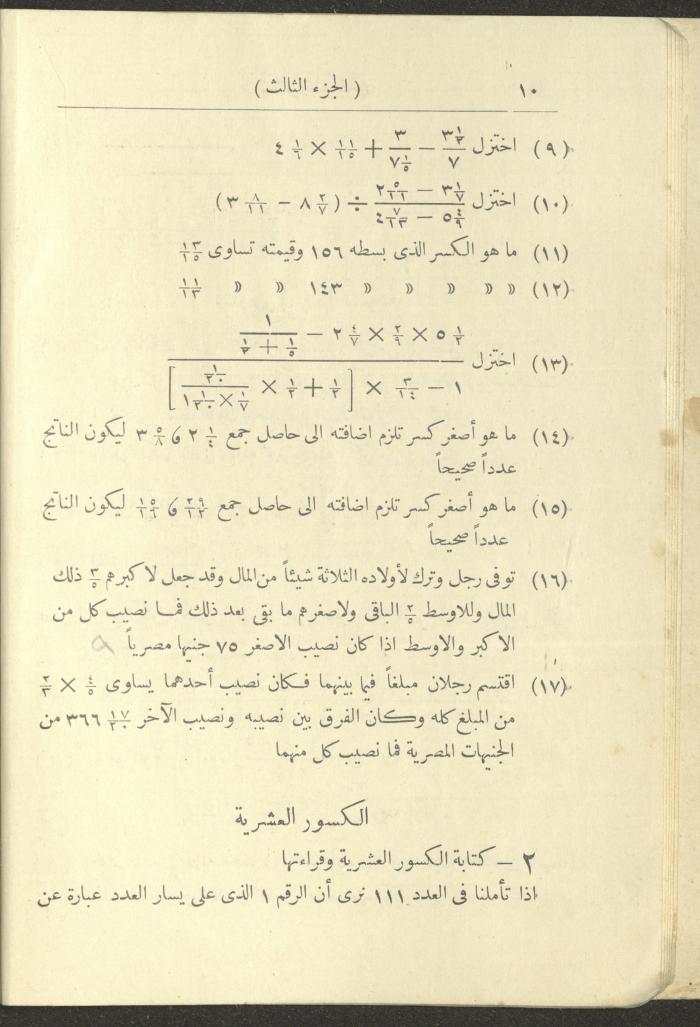 ١٠ (الجزء الثالث)
(٩) اختزل ٣ ١/٣ / ٧ − ٣ / ٧ ١/٥ + ١١/١٥ × ٤ ١/٦
(١٠) اختزل (٣ ١/٧ − ٢ ٥/٢١) / (٥ ٤/٩ − ٤ ٧/١٣) ÷ (٨ ٢/٧ − ٣ ٨/١١)
(١١) ما هو الكسر الذى بسطه ١٥٦ وقيمته تساوى ١٣/١٥
(١٢) » » » » » ١٤٣ » » ١١/١٣
(١٣) اختزل
٥ ١/٢ × ٢/٩ × ٢ ٤/٧ − ١ / (١/٥ + ١/٣)
١ − ٣/١٤ × [ ١/٢ + ١/٢ ×
(١٤) ما هو أصغر كسر تلزم اضافته الى حاصل جمع ٢ ١/٤ و ٣ ٥/٨ ليكون الناتج
عدداً صحيحاً
(١٥) ما هو أصغر كسر تلزم اضافته الى حاصل جمع و ليكون الناتج
عدداً صحيحاً
(١٦) توفى رجل وترك لأولاده الثلاثة شيئاً من المال وقد جعل لاكبرهم ٣/٥ ذلك
المال وللاوسط ٢/٥ الباقى ولاصغرهم ما بقى بعد ذلك فما نصيب كل من
الاكبر والاوسط اذا كان نصيب الاصغر ٧٥ جنيها مصرياً
(١٧) اقتسم رجلان مبلغاً فيما بينهما فكان نصيب أحدهما يساوى ٤/٥ × ٢/٣
من المبلغ كله وكان الفرق بين نصيبه ونصيب الآخر ٣٦٦ ١٧/٢٠ من
الجنيهات المصرية فما نصيب كل منهما
الكسور العشرية
٢ − كتابة الكسور العشرية وقراءتها
اذا تأملنا فى العدد ١١١ نرى أن الرقم ١ الذى على يسار العدد عبارة عن